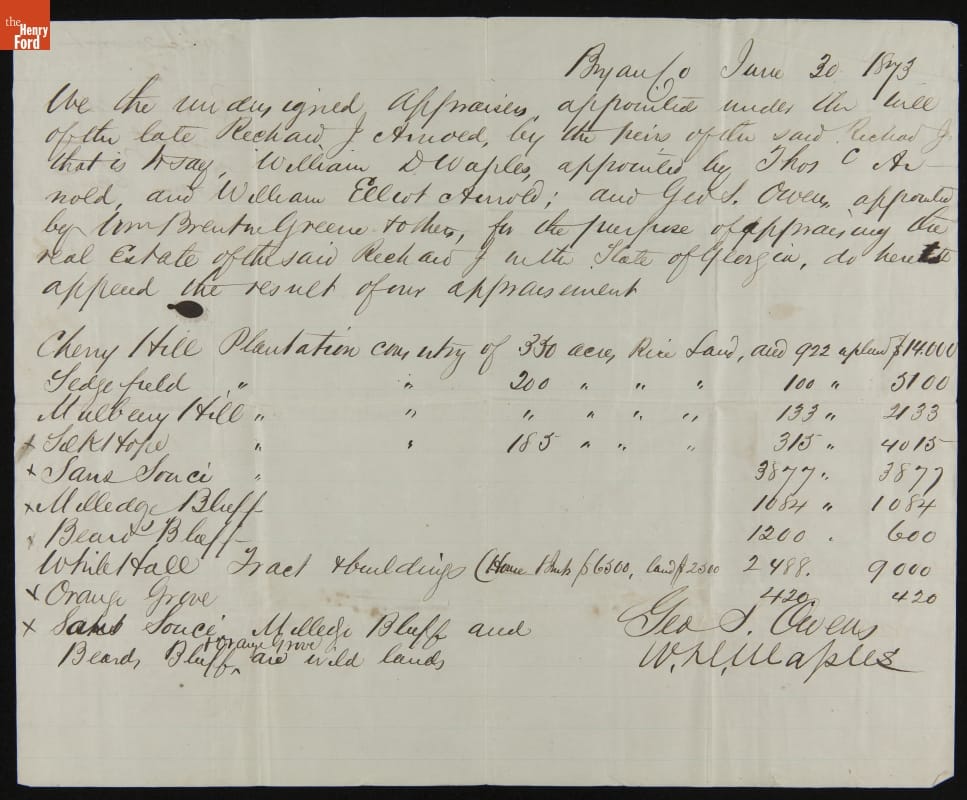 the
Henry
Ford
Bryan Co June 30 1873
We the undersigned Appraisers, appointed under the will
of the late Richard J Arnold, by the heirs of the said Richard J
that is to say, William D Waples, appointed by Thos C Ar-
nold, and William Elliot Arnold; and Geo S. Owens, appointed
by Wm Brenton Greene & others, for the purpose of appraising the
real Estate of the said Richard J in the State of Georgia, do hereto
append the result of our appraisement
Cherry Hill Plantation consisting of 330 acres Rice Land, and 922 upland $14.000
Sedgefield " " 200 " " " 100 " 5100
Mulberry Hill " " " " " " 133 " 2133
x Silk Hope " " 185 " " " 315 " 4015
x Sans Souci " 3877 " 3877
x Milledge Bluff 1084 " 1084
x Beards Bluff 1200 . 600
White Hall Tract & buildings (House $6500, land $2500 2488. 9000
x Orange Grove 420 420
x Sans Souci, Milledge Bluff and Geo S. Owens
Beards Bluff & Orange Grove are wild lands W. D. Waples